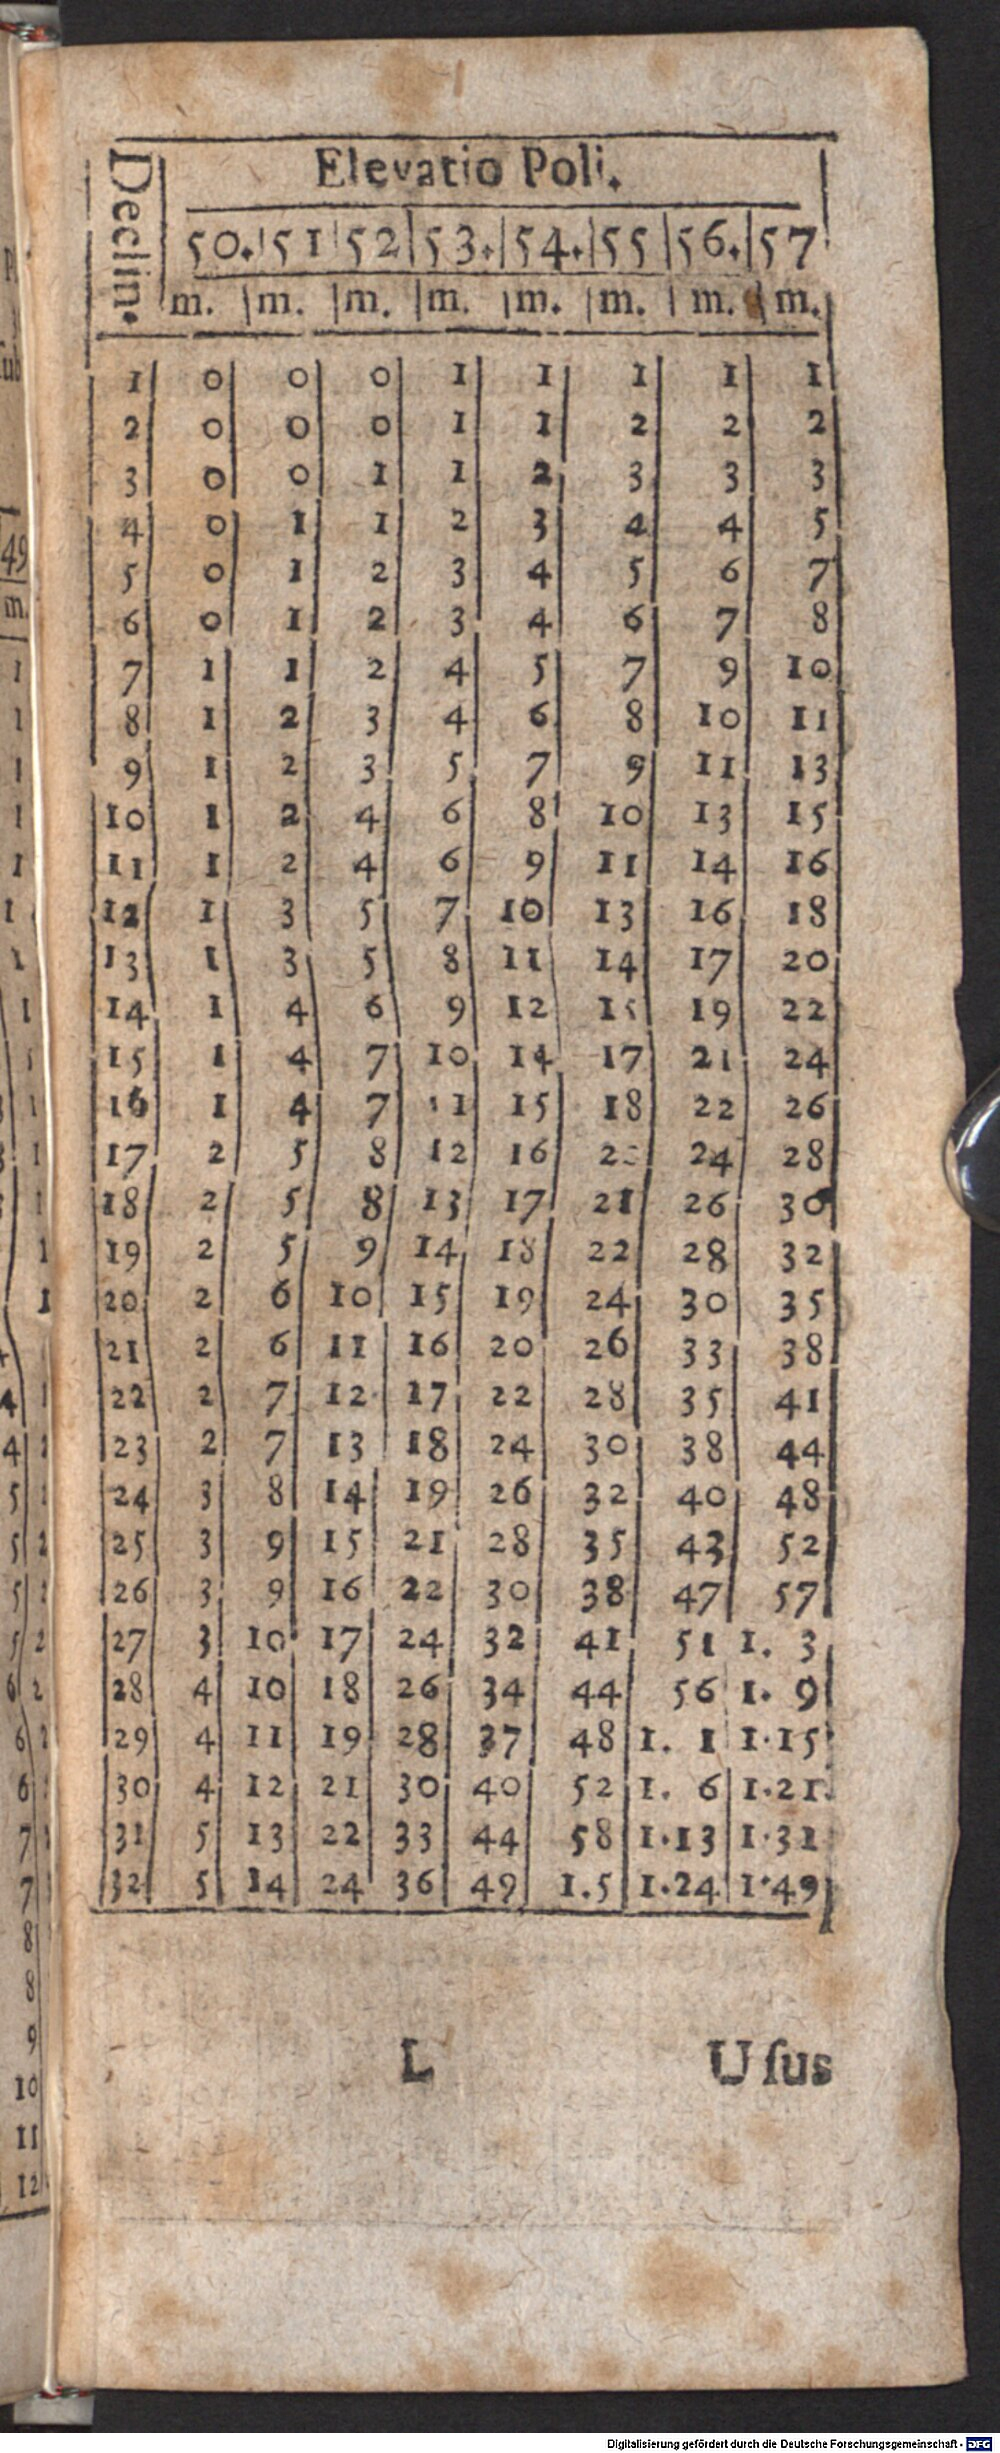 Elevatio Poli.
Declin.
50. 51 52 53. 54. 55 56. 57
m. m. m. m. m. m. m. m.
1 0 0 0 1 1 1 1 1
2 0 0 0 1 1 2 2 2
3 0 0 1 1 2 3 3 3
4 0 1 1 2 3 4 4 5
5 0 1 2 3 4 5 6 7
6 0 1 2 3 4 6 7 8
7 1 1 2 4 5 7 9 10
8 1 2 3 4 6 8 10 11
9 1 2 3 5 7 9 11 13
10 1 2 4 6 8 10 13 15
11 1 2 4 6 9 11 14 16
12 1 3 5 7 10 13 16 18
13 1 3 5 8 11 14 17 20
14 1 4 6 9 12 15 19 22
15 1 4 7 10 14 17 21 24
16 1 4 7 11 15 18 22 26
17 2 5 8 12 16 24 28
18 2 5 8 13 17 21 26 30
19 2 5 9 14 18 22 28 32
20 2 6 10 15 19 24 30 35
21 2 6 11 16 20 26 33 38
22 2 7 12 17 22 28 35 41
23 2 7 13 18 24 30 38 44
24 3 8 14 19 26 32 40 48
25 3 9 15 21 28 35 43 52
26 3 9 16 22 30 38 47 57
27 3 10 17 24 32 41 51 1. 3
28 4 10 18 26 34 44 56 1. 9
29 4 11 19 28 37 48 1. 1 1.15
30 4 12 21 30 40 52 1. 6 1.21
31 5 13 22 33 44 58 1.13 1.31
32 5 14 24 36 49 1.5 1.24 1.49
L Uſus
Digitalisierung gefördert durch die Deutsche Forschungsgemeinschaft - DFG